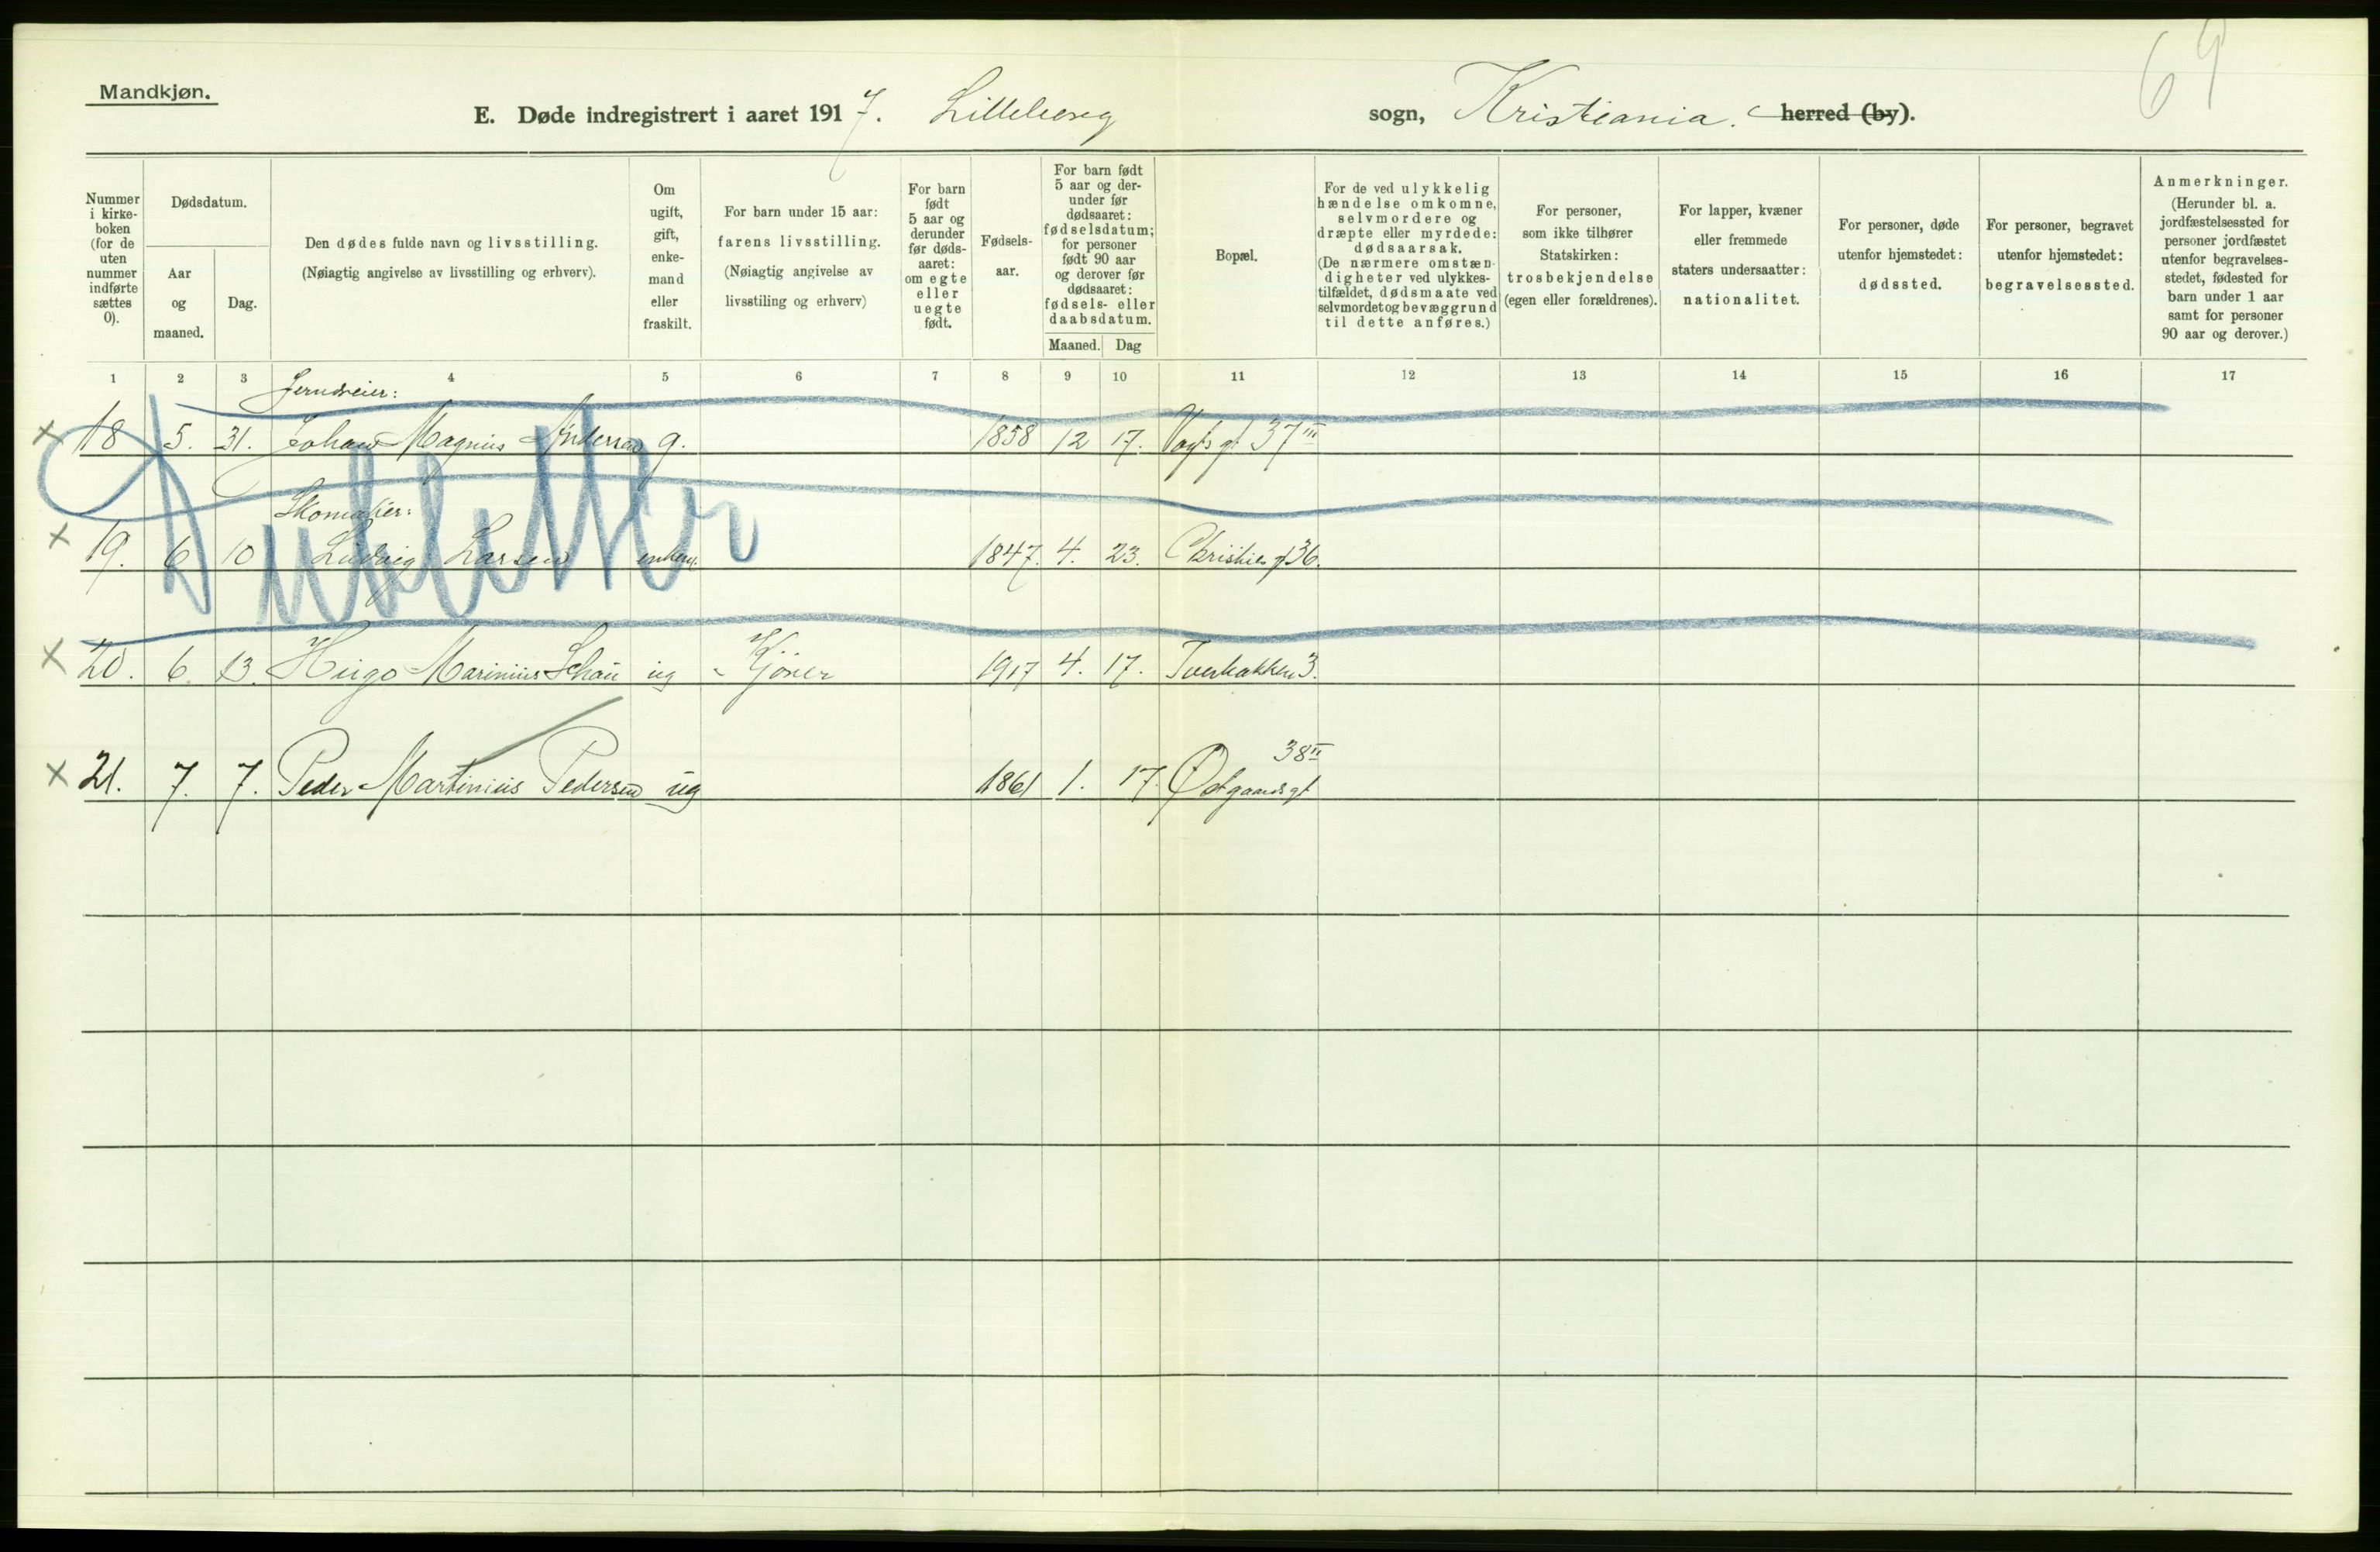 69
Mandkjøn.
E. Døde indregistrert i aaret 1917. Lilleborg sogn, Kristiania. herred (by).
Nummer i kirkeboken (for de uten nummer indførte sættes 0).
Dødsdatum.
Aar og maaned.
Dag.
Den dødes fulde navn og livsstilling.
(Nøiagtig angivelse av livsstilling og erhverv).
Om ugift, gift, enkemand eller fraskilt.
For barn under 15 aar: farens livsstilling.
(Nøiagtig angivelse av livsstiling og erhverv)
For barn født 5 aar og derunder før dødsaaret: om egte eller uegte født.
Fødselsaar.
For barn født 5 aar og derunder før dødsaaret: fødselsdatum; for personer født 90 aar og derover før dødsaaret: fødsels- eller daabsdatum.
Maaned. Dag
Bopæl.
For de ved ulykkelig hændelse omkomne, selvmordere og dræpte eller myrdede: dødsaarsak.
(De nærmere omstændigheter ved ulykkestilfældet, dødsmaate ved selvmordet og bevæggrund til dette anføres.)
For personer, som ikke tilhører Statskirken: trosbekjendelse (egen eller forældrenes).
For lapper, kvæner eller fremmede staters undersaatter: nationalitet.
For personer, døde utenfor hjemstedet: dødssted.
For personer, begravet utenfor hjemstedet: begravelsessted.
Anmerkninger.
(Herunder bl. a. jordfæstelsessted for personer jordfæstet utenfor begravelsesstedet, fødested for barn under 1 aar samt for personer 90 aar og derover.)
1 2 3 4 5 6 7 8 9 10 11 12 13 14 15 16 17
Jerndreier:
x 18 5. 31. Johan Magnus Andersen g. 1858 12 17. Vogts gt 37 III
Dubletter
Skomaker:
x 19. 6 10 Ludvig Larsen enkem. 1847. 4. 23. Christies gt 36.
x 20. 6 13. Hugo Marinius Schau ug Kjører 1917 4. 17. Tverbakken 3.
38 II
x 21. 7. 7. Peder Martinius Pedersen ug 1861 1. 17. Østgaards gt